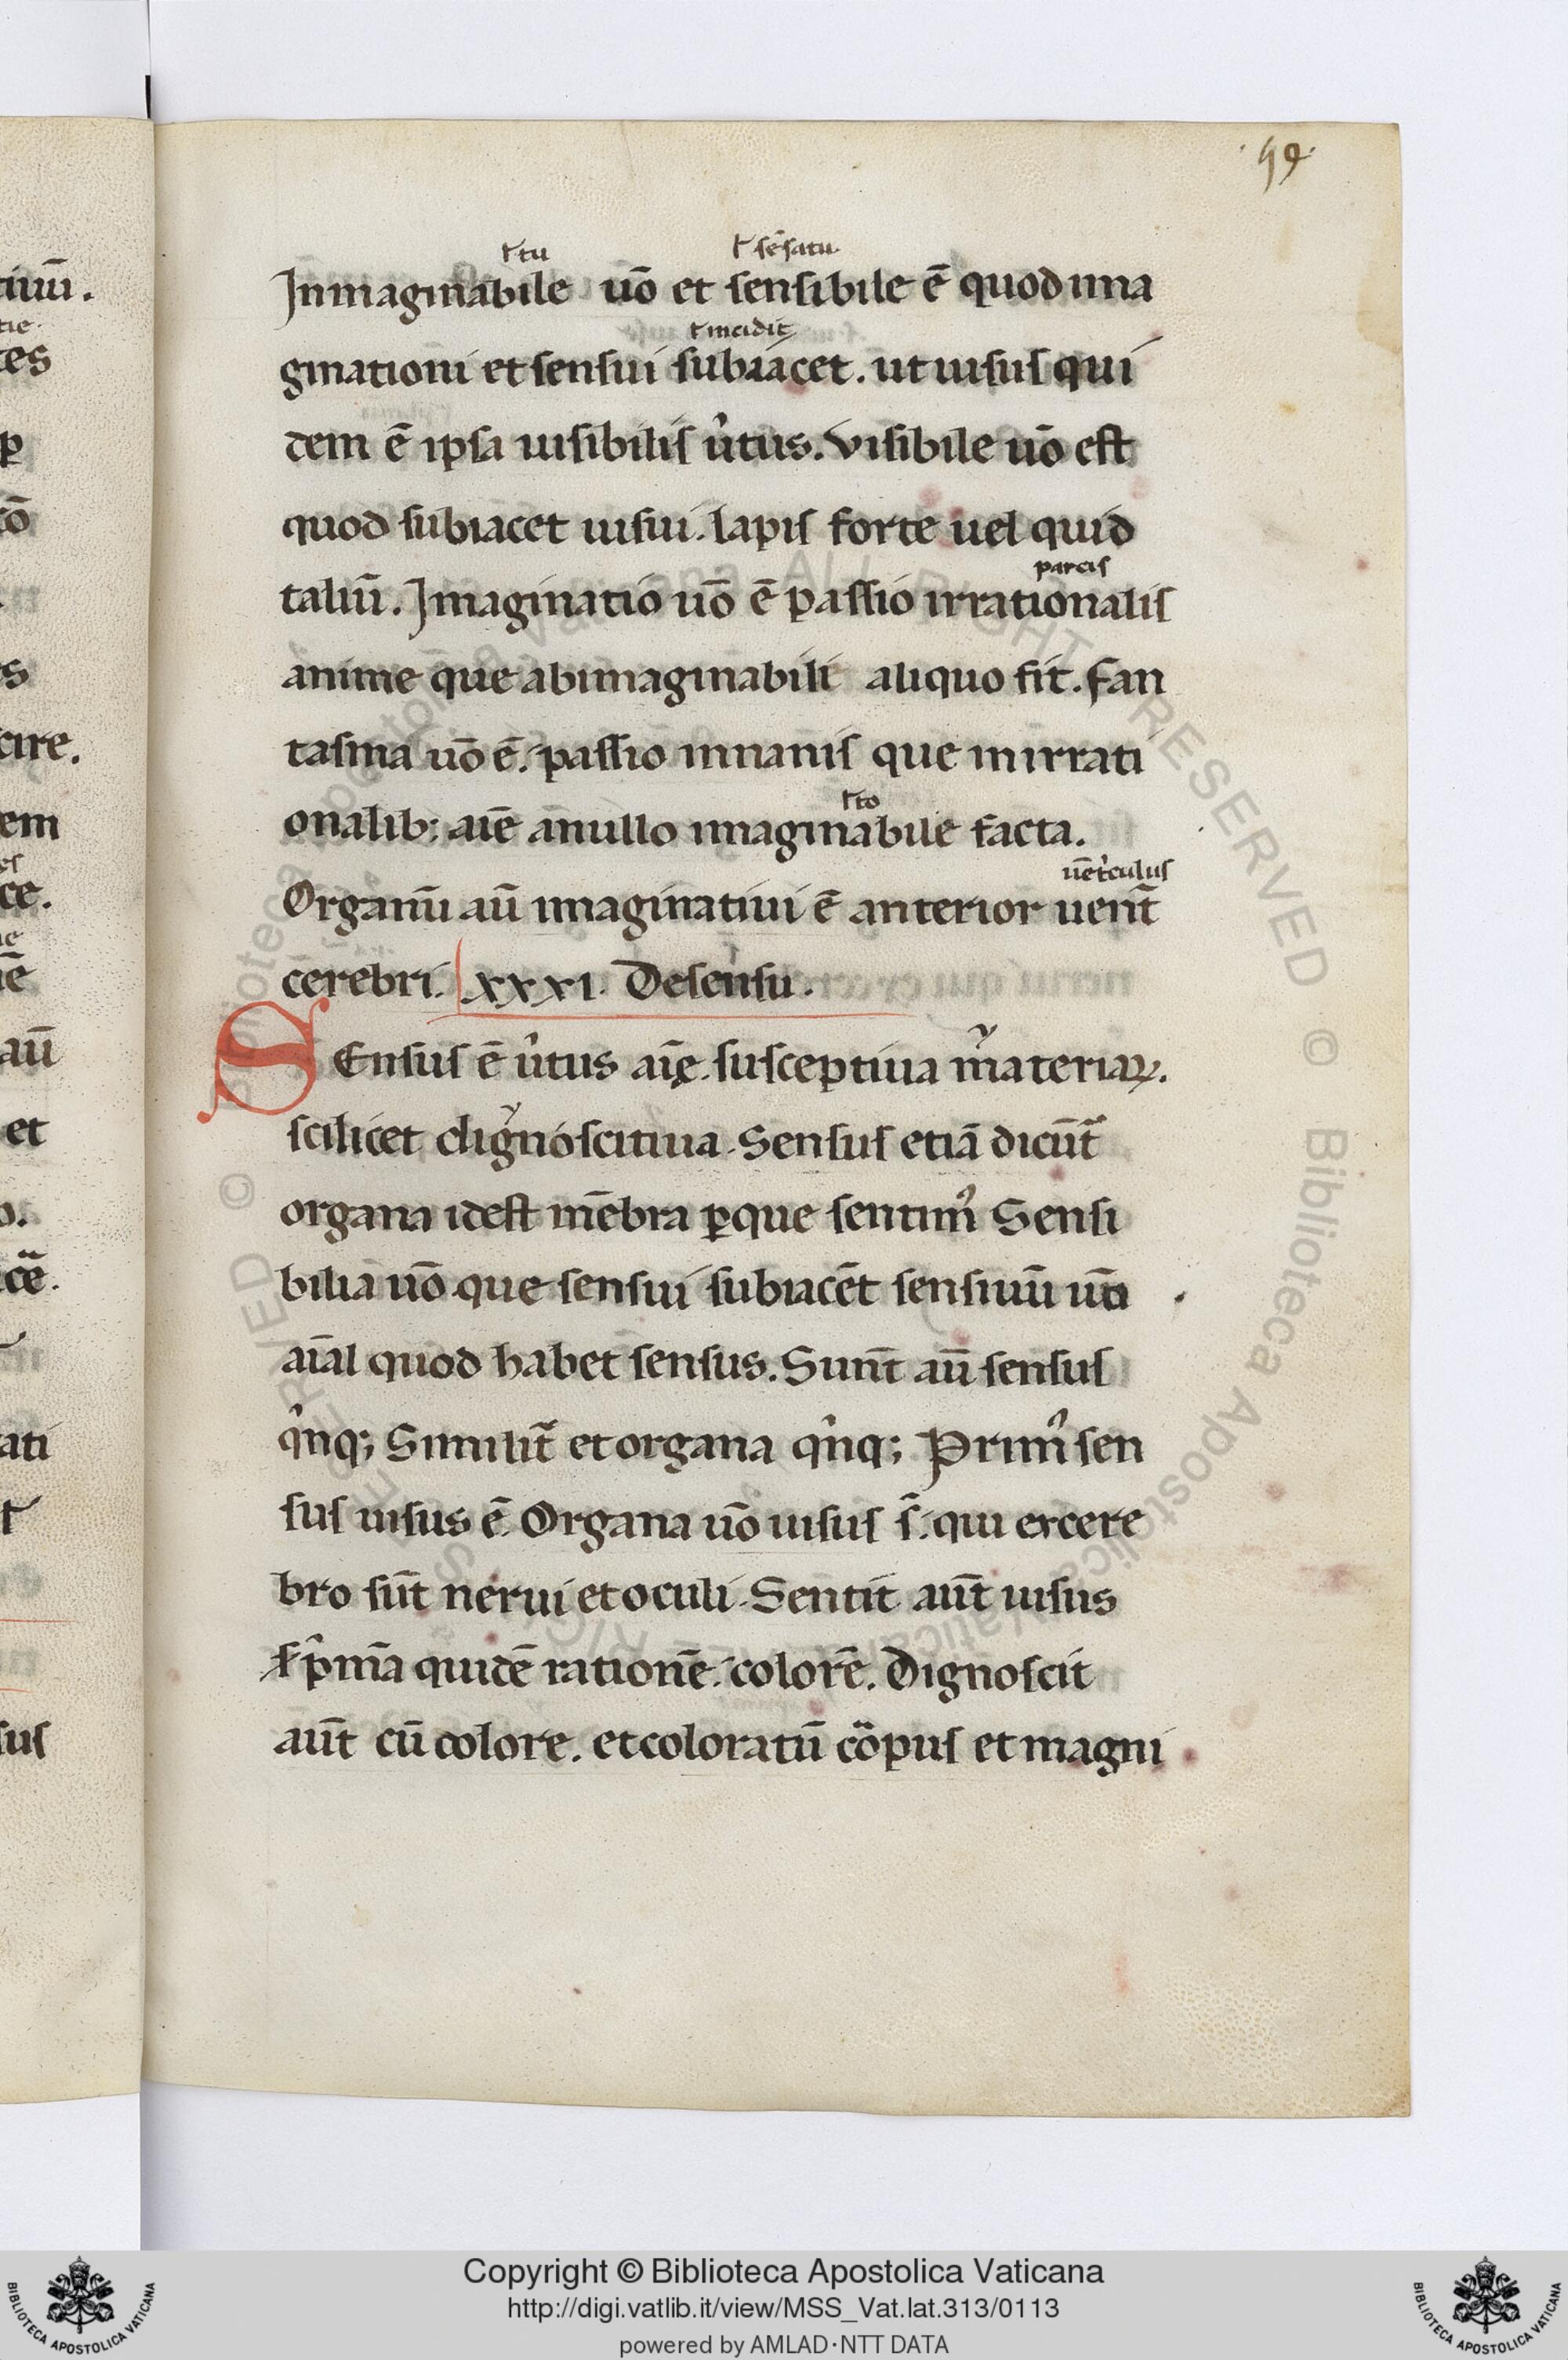 59
ł tu ł sẽsatu
Jnmaginabile uō et sensibile ē quod ima
ł incidit
ginationi et sensui subiacet. ut uisus qui
dem ē ipsa uisibilis u̇tus. Visibile uō est
quod subiacet uisui. lapis forte uel quid
partis
taliū. Jmaginatio uō ē passio irrationalis
anime que ab imaginabili aliquo fit. fan
tasma uō ē. passio innanis que in irrati
ł to
onalib; aīe a nullo imaginabile facta.
uēt̉culus
Organū aū imaginatiui ē anterior uent̄
cerebri. xxxi. De sensu.
SEnsus ē u̇tus aīę. susceptiua materiaꝝ.
scilicet dignoscitiua. Sensus etiā dicūt̃
organa id est mēbra ꝑ que sentim᾿ Sensi
bilia uō que sensui subiacēt sensiuū uō
aīal quod habet sensus. Sunt aū sensus
q̇nq; Similit̃ et organa q̇nq; Prim᾿ sen
sus uisus ē. Organa uō uisus s̄. qui ex cere
bro sūt nerui et oculi. Sentit aūt uisus
ṗmā quidē rationē. colorē. Dignoscit
aūt cū colore. et coloratū cōpus et magni
tiuū.
tes
ꝑ
tō
s
cire.
em
ce.
aū
et
ati
sus
Copyright © Biblioteca Apostolica Vaticana
http://digi.vatlib.it/view/MSS_Vat.lat.313/0113
powered by AMLAD·NTT DATA
BIBLIOTECA APOSTOLICA VATICANA
BIBLIOTECA APOSTOLICA VATICANA
© Biblioteca Apostolica Vaticana ALL RIGHTS RESERVED